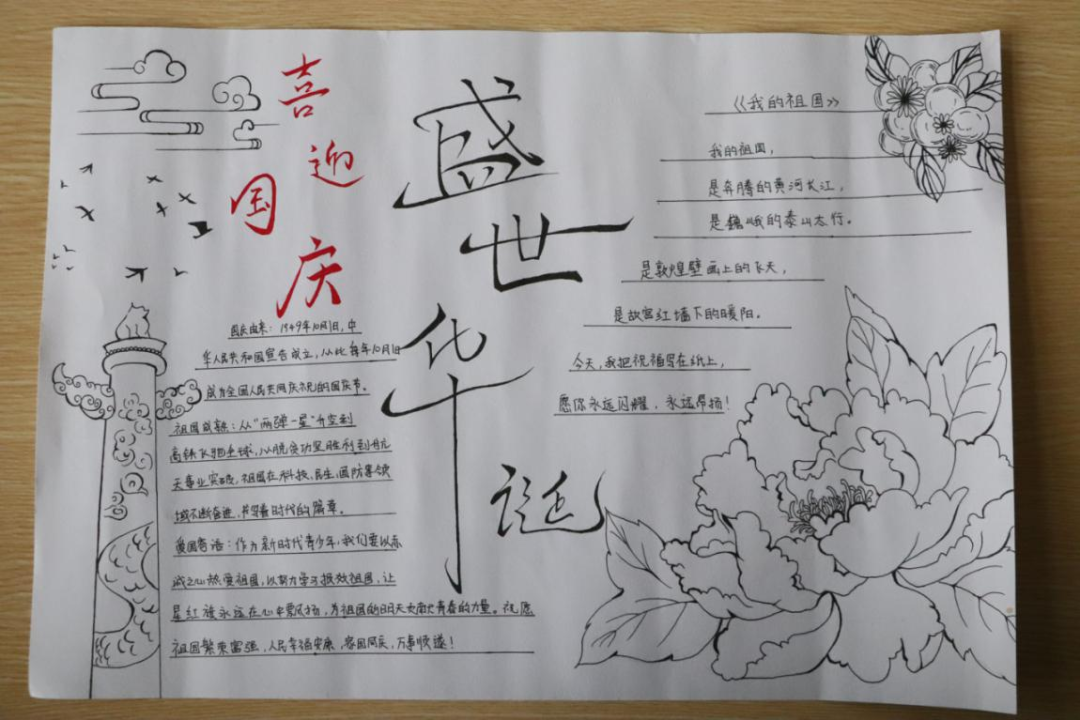 喜迎国庆
盛世华诞
国庆由来：1949年10月1日，中
华人民共和国宣告成立，从此每年10月1日
成为全国人民共同庆祝的国庆节。
祖国成就：从“两弹一星”升空到
高铁飞驰全球，从脱贫攻坚胜利到航
天事业突破，祖国在科技、民生、国防等领
域不断奋进，书写着时代的篇章。
爱国寄语：作为新时代青少年，我们要以赤
诚之心热爱祖国，以努力学习报效祖国，让
星红旗永远在心中飘扬，为祖国的明天贡献青春的力量。祝愿
祖国繁荣富强，人民幸福安康，家国同庆，万事顺遂！
《我的祖国》
我的祖国，
是奔腾的黄河长江，
是巍峨的泰山太行。
是敦煌壁画上的飞天，
是故宫红墙下的暖阳。
今天，我把祝福写在纸上，
愿你永远闪耀，永远昂扬！